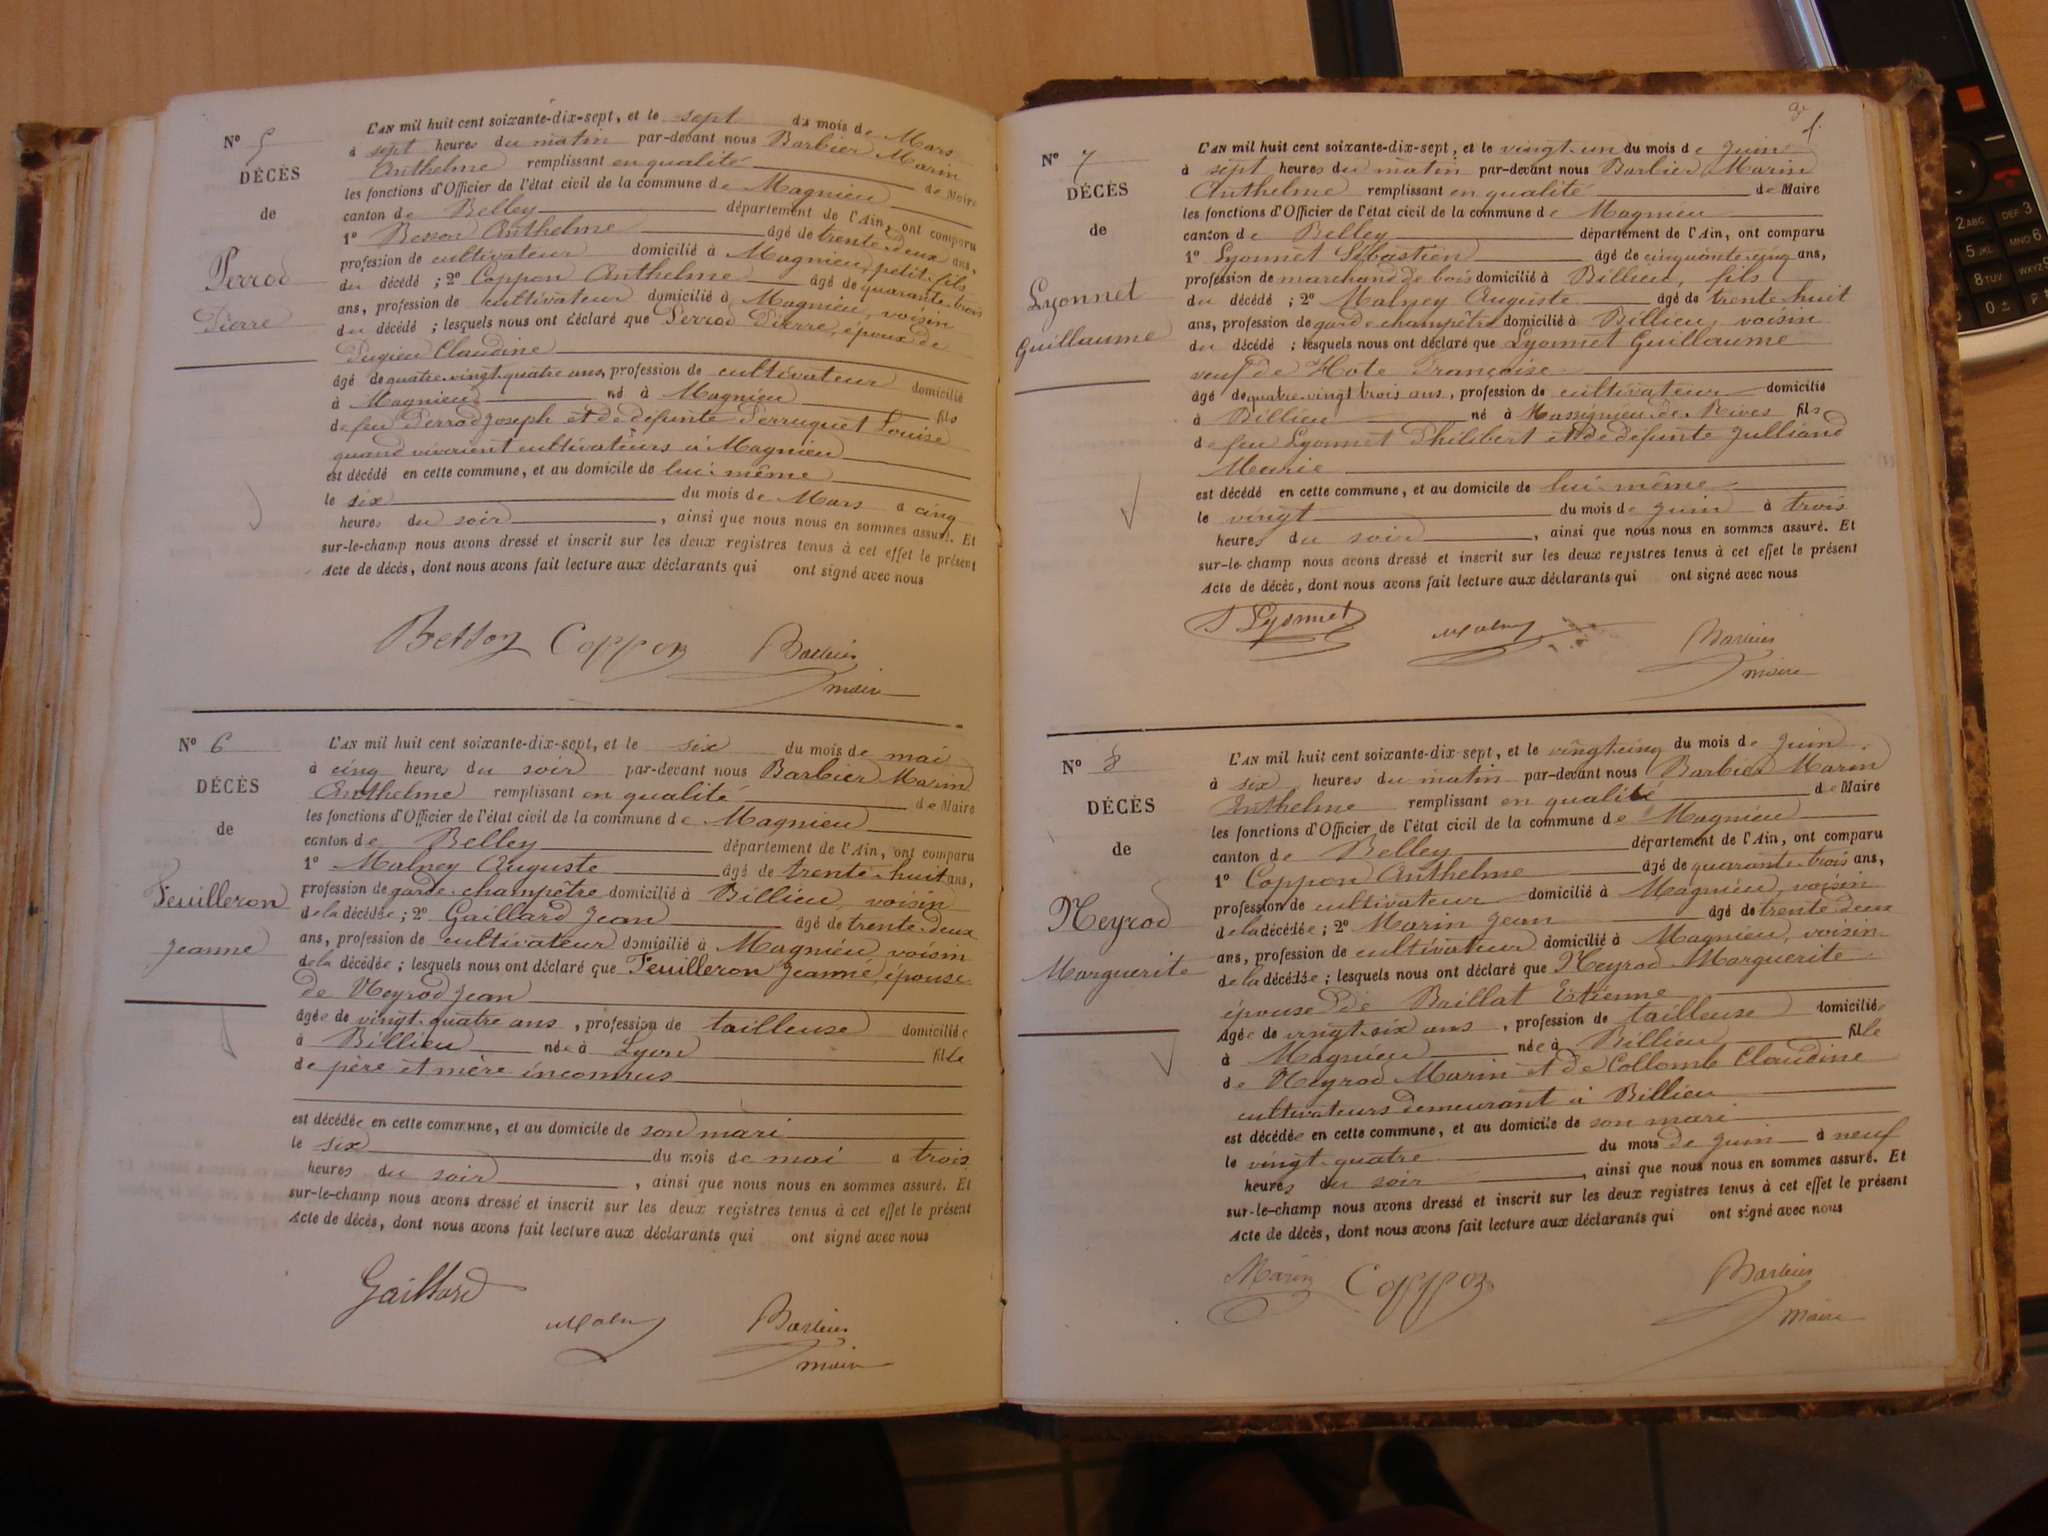 Nº 5
DÉCÈS
de
Perrod
Pierre
L'AN mil huit cent soixante-dix-sept, et le sept du mois de Mars
à sept heures du matin par-devant nous Barbier Marin
Anthelme remplissant en qualité de Maire
les fonctions d'Officier de l'état civil de la commune de Magnieu
canton de Belley département de l'Ain, ont comparu
1º Besson Anthelme âgé de trente-deux ans,
profession de cultivateur domicilié à Magnieu, petit-fils
du décédé ; 2º Coppon Anthelme âgé de quarante-trois
ans, profession de cultivateur domicilié à Magnieu, voisin
du décédé ; lesquels nous ont déclaré que Perrod Pierre, époux de
Pugieu Claudine
âgé de quatre-vingt-quatre ans, profession de cultivateur domicilié
à Magnieu né à Magnieu fils
de feu Perrod Joseph et de défunte Perruquet Louise
quand vivaient cultivateurs à Magnieu
est décédé en cette commune, et au domicile de lui-même
le six du mois de Mars à cinq
heures du soir, ainsi que nous nous en sommes assuré. Et
sur-le-champ nous avons dressé et inscrit sur les deux registres tenus à cet effet le présent
Acte de décès, dont nous avons fait lecture aux déclarants qui ont signé avec nous
Besson Coppon Barbier
maire
Nº 6
DÉCÈS
de
Feuilleron
Jeanne
L'AN mil huit cent soixante-dix-sept, et le six du mois de mai
à cinq heures du soir par-devant nous Barbier Marin
Anthelme remplissant en qualité de Maire
les fonctions d'Officier de l'état civil de la commune de Magnieu
canton de Belley département de l'Ain, ont comparu
1º Malney Auguste âgé de trente-huit ans,
profession de garde-champêtre domicilié à Billieu, voisin
de la décédée ; 2º Gaillard Jean âgé de trente-deux
ans, profession de cultivateur domicilié à Magnieu voisin
de la décédée ; lesquels nous ont déclaré que Feuilleron Jeanne, épouse
de Neyrod Jean
âgée de vingt-quatre ans, profession de tailleuse domiciliée
à Billieu née à Lyon fille
de père et mère inconnus
est décédée en cette commune, et au domicile de son mari
le six du mois de mai à trois
heures du soir, ainsi que nous nous en sommes assuré. Et
sur-le-champ nous avons dressé et inscrit sur les deux registres tenus à cet effet le présent
Acte de décès, dont nous avons fait lecture aux déclarants qui ont signé avec nous
Gaillard
Malney Barbier
maire
Nº 7
DÉCÈS
de
Lyonnet
Guillaume
L'AN mil huit cent soixante-dix-sept, et le vingt-un du mois de Juin
à sept heures du matin par-devant nous Barbier Marin
Anthelme remplissant en qualité de Maire
les fonctions d'Officier de l'état civil de la commune de Magnieu
canton de Belley département de l'Ain, ont comparu
1º Lyonnet Sébastien âgé de cinquante-cinq ans,
profession de marchand de bois domicilié à Billieu, fils
du décédé ; 2º Malney Auguste âgé de trente-huit
ans, profession de garde-champêtre domicilié à Billieu, voisin
du décédé ; lesquels nous ont déclaré que Lyonnet Guillaume
veuf de Hote Françoise
âgé de quatre-vingt trois ans, profession de cultivateur domicilié
à Billieu né à Massignieu-de-Rives fils
de feu Lyonnet Philibert et de défunte Julliand
Marie
est décédé en cette commune, et au domicile de lui-même
le vingt du mois de Juin à trois
heures du soir, ainsi que nous nous en sommes assuré. Et
sur-le-champ nous avons dressé et inscrit sur les deux registres tenus à cet effet le présent
Acte de décès, dont nous avons fait lecture aux déclarants qui ont signé avec nous
S Lyonnet Malney Barbier
maire
Nº 8
DÉCÈS
de
Neyrod
Marguerite
L'AN mil huit cent soixante-dix-sept, et le vingt-cinq du mois de Juin
à six heures du matin par-devant nous Barbier Marin
Anthelme remplissant en qualité de Maire
les fonctions d'Officier de l'état civil de la commune de Magnieu
canton de Belley département de l'Ain, ont comparu
1º Coppon Anthelme âgé de quarante-trois ans,
profession de cultivateur domicilié à Magnieu, voisin
de la décédée ; 2º Marin Jean âgé de trente-deux
ans, profession de cultivateur domicilié à Magnieu, voisin
de la décédée ; lesquels nous ont déclaré que Neyrod Marguerite
épouse de Brillat Etienne
âgée de vingt-six ans, profession de tailleuse domiciliée
à Magnieu née à Billieu fille
de Neyrod Marin et de Collomb Claudine
cultivateurs demeurant à Billieu
est décédée en cette commune, et au domicile de son mari
le vingt-quatre du mois de Juin à neuf
heures du soir, ainsi que nous nous en sommes assuré. Et
sur-le-champ nous avons dressé et inscrit sur les deux registres tenus à cet effet le présent
Acte de décès, dont nous avons fait lecture aux déclarants qui ont signé avec nous
Marin Coppon Barbier
maire
2ABC DEF3
5JKL MNO6
8TUV WXYZ9